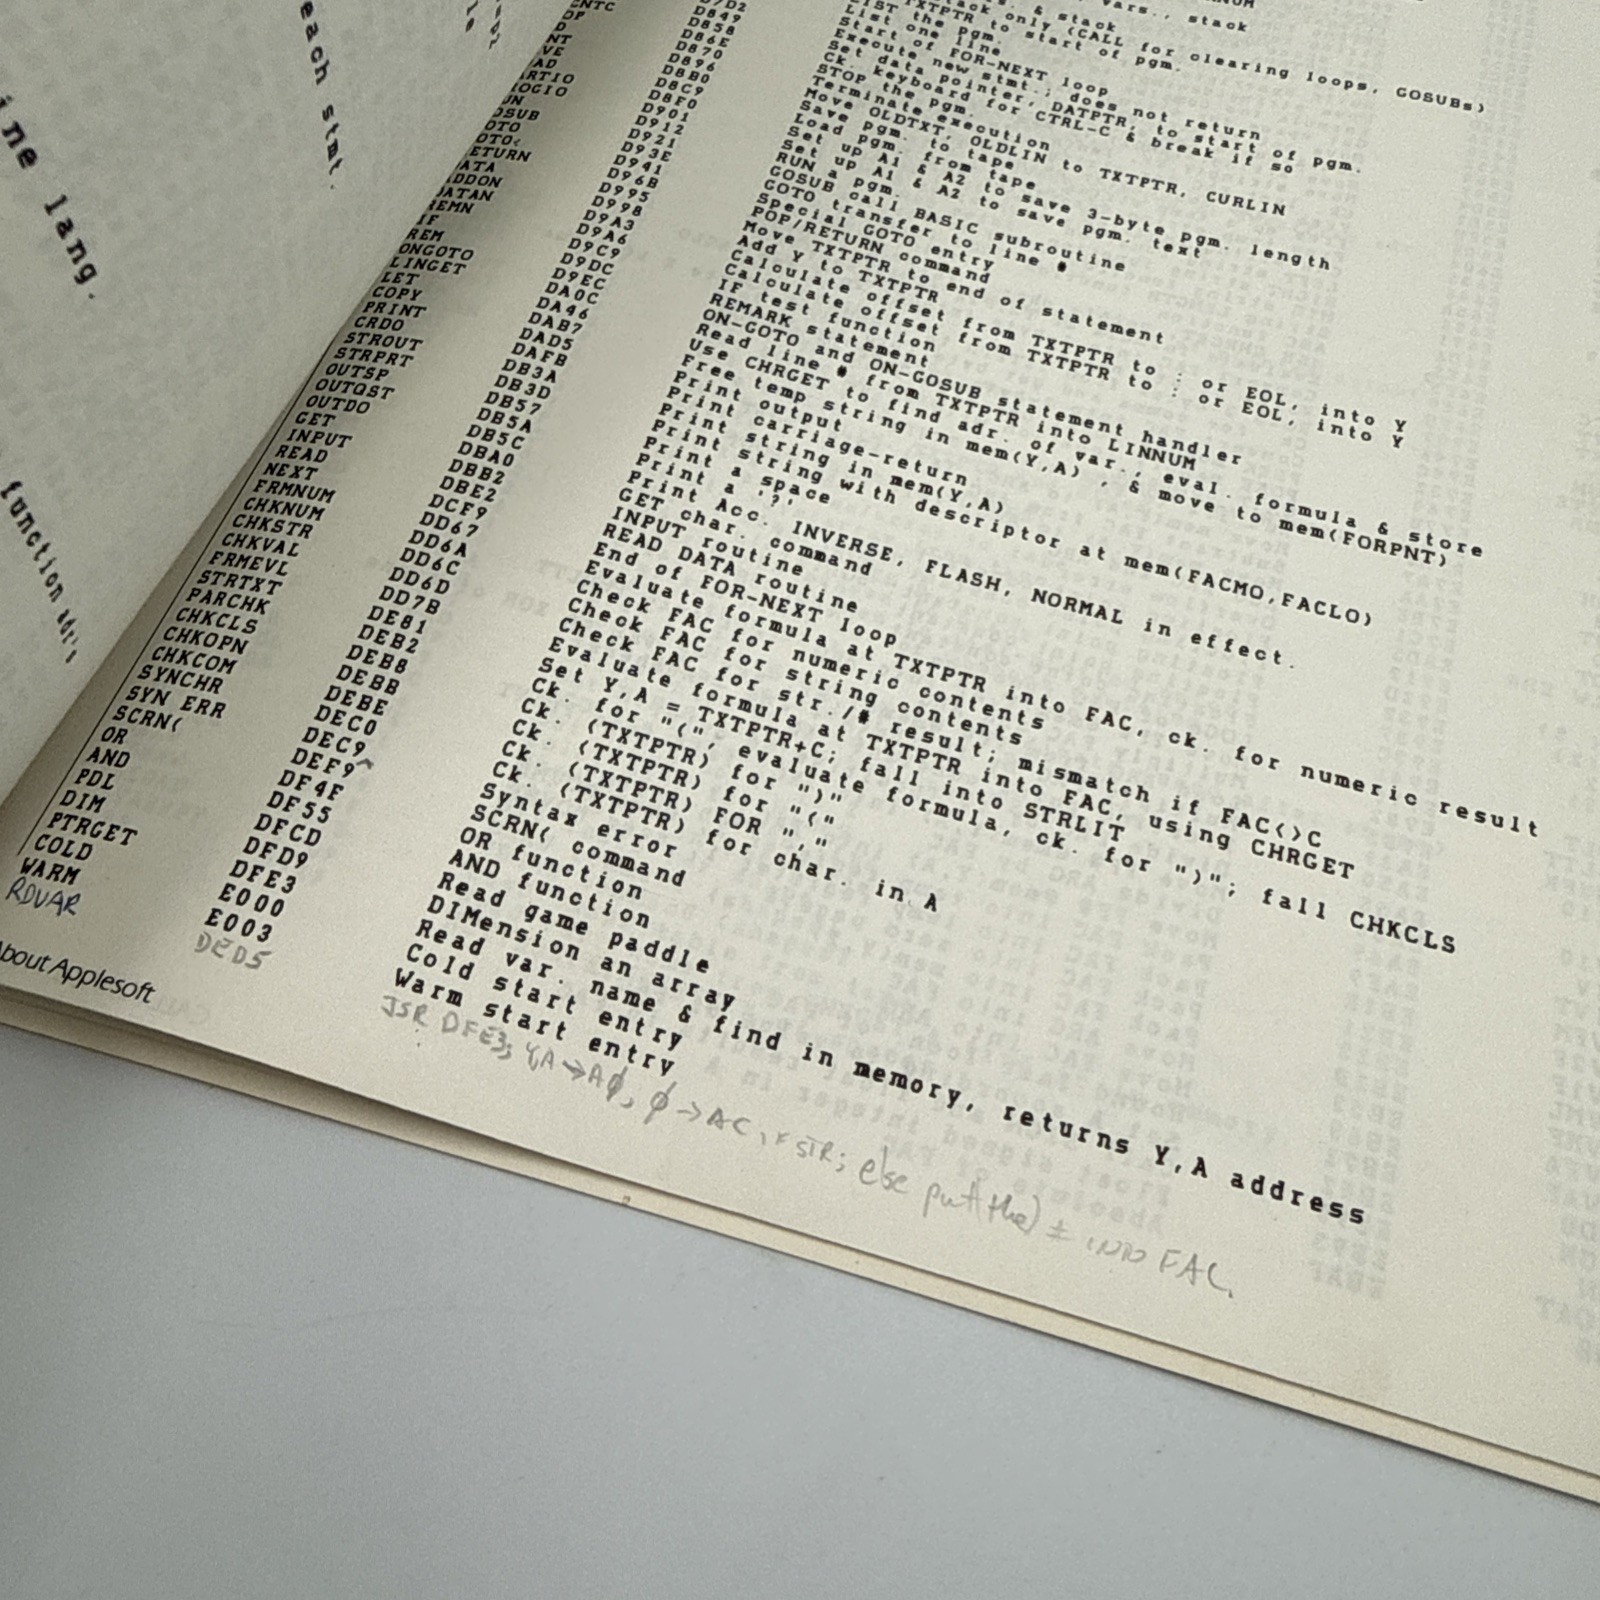 each stmt.
ine lang.
function adr's
NTC D858 Ck. keyboard for CTRL-C & break if so
OP D86E STOP the pgm.
D D870 Terminate execution
NT D896 Move OLDTXT, OLDLIN to TXTPTR, CURLIN
VE D8B0 Save pgm. to tape
AD D8C9 Load pgm. from tape
ARTIO D8F0 Set up A1 & A2 to save 3-byte pgm. length
OGIO D901 Set up A1 & A2 to save pgm. text
UN D912 RUN a pgm.
OSUB D921 GOSUB call BASIC subroutine
OTO D93E GOTO transfer to line #
OTO< D941 Special GOTO entry
ETURN D96B POP/RETURN command
ATA D995 Move TXTPTR to end of statement
ADDON D998 Add Y to TXTPTR
DATAN D9A3 Calculate offset from TXTPTR to : or EOL, into Y
REMN D9A6 Calculate offset from TXTPTR to : or EOL, into Y
IF D9C9 IF test function
REM D9DC REMARK statement
ONGOTO D9EC ON-GOTO and ON-GOSUB statement handler
LINGET DA0C Read line # from TXTPTR into LINNUM
LET DA46 Use CHRGET to find adr. of var., eval. formula & store
COPY DAB7 Free temp string in mem(Y,A) , & move to mem(FORPNT)
PRINT DAD5 Print output
CRDO DAFB Print carriage-return
STROUT DB3A Print string in mem(Y,A)
STRPRT DB3D Print string with descriptor at mem(FACMO,FACLO)
OUTSP DB57 Print a space
OUTQST DB5A Print a '?'
OUTDO DB5C Print Acc. INVERSE, FLASH, NORMAL in effect.
GET DBA0 GET char. command
INPUT DBB2 INPUT routine
READ DBE2 READ DATA routine
NEXT DCF9 End of FOR-NEXT loop
FRMNUM DD67 Evaluate formula at TXTPTR into FAC, ck. for numeric result
CHKNUM DD6A Check FAC for numeric contents
CHKSTR DD6C Check FAC for string contents
CHKVAL DD6D Check FAC for str./# result; mismatch if FAC<>C
FRMEVL DD7B Evaluate formula at TXTPTR into FAC, using CHRGET
STRTXT DE81 Set Y,A = TXTPTR+C; fall into STRLIT
PARCHK DEB2 Ck. for "(", evaluate formula, ck. for ")"; fall CHKCLS
CHKCLS DEB8 Ck. (TXTPTR) for ")"
CHKOPN DEBB Ck. (TXTPTR) for "("
CHKCOM DEBE Ck. (TXTPTR) FOR ","
SYNCHR DEC0 Ck. (TXTPTR) for char. in A
SYN ERR DEC9 Syntax error
SCRN( DEF9 SCRN( command
OR DF4F OR function
AND DF55 AND function
PDL DFCD Read game paddle
DIM DFD9 DIMension an array
PTRGET DFE3 Read var. name & find in memory, returns Y,A address
COLD E000 Cold start entry
WARM E003 Warm start entry
RDVAR DED5 JSR DFE3; YA→Aφ, φ→AC, STR; else put(the) ± INTO FAC.
About Applesoft